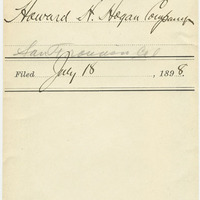 Howard H. Hogan Company
San Francisco Cal
Filed July 18, 1898.